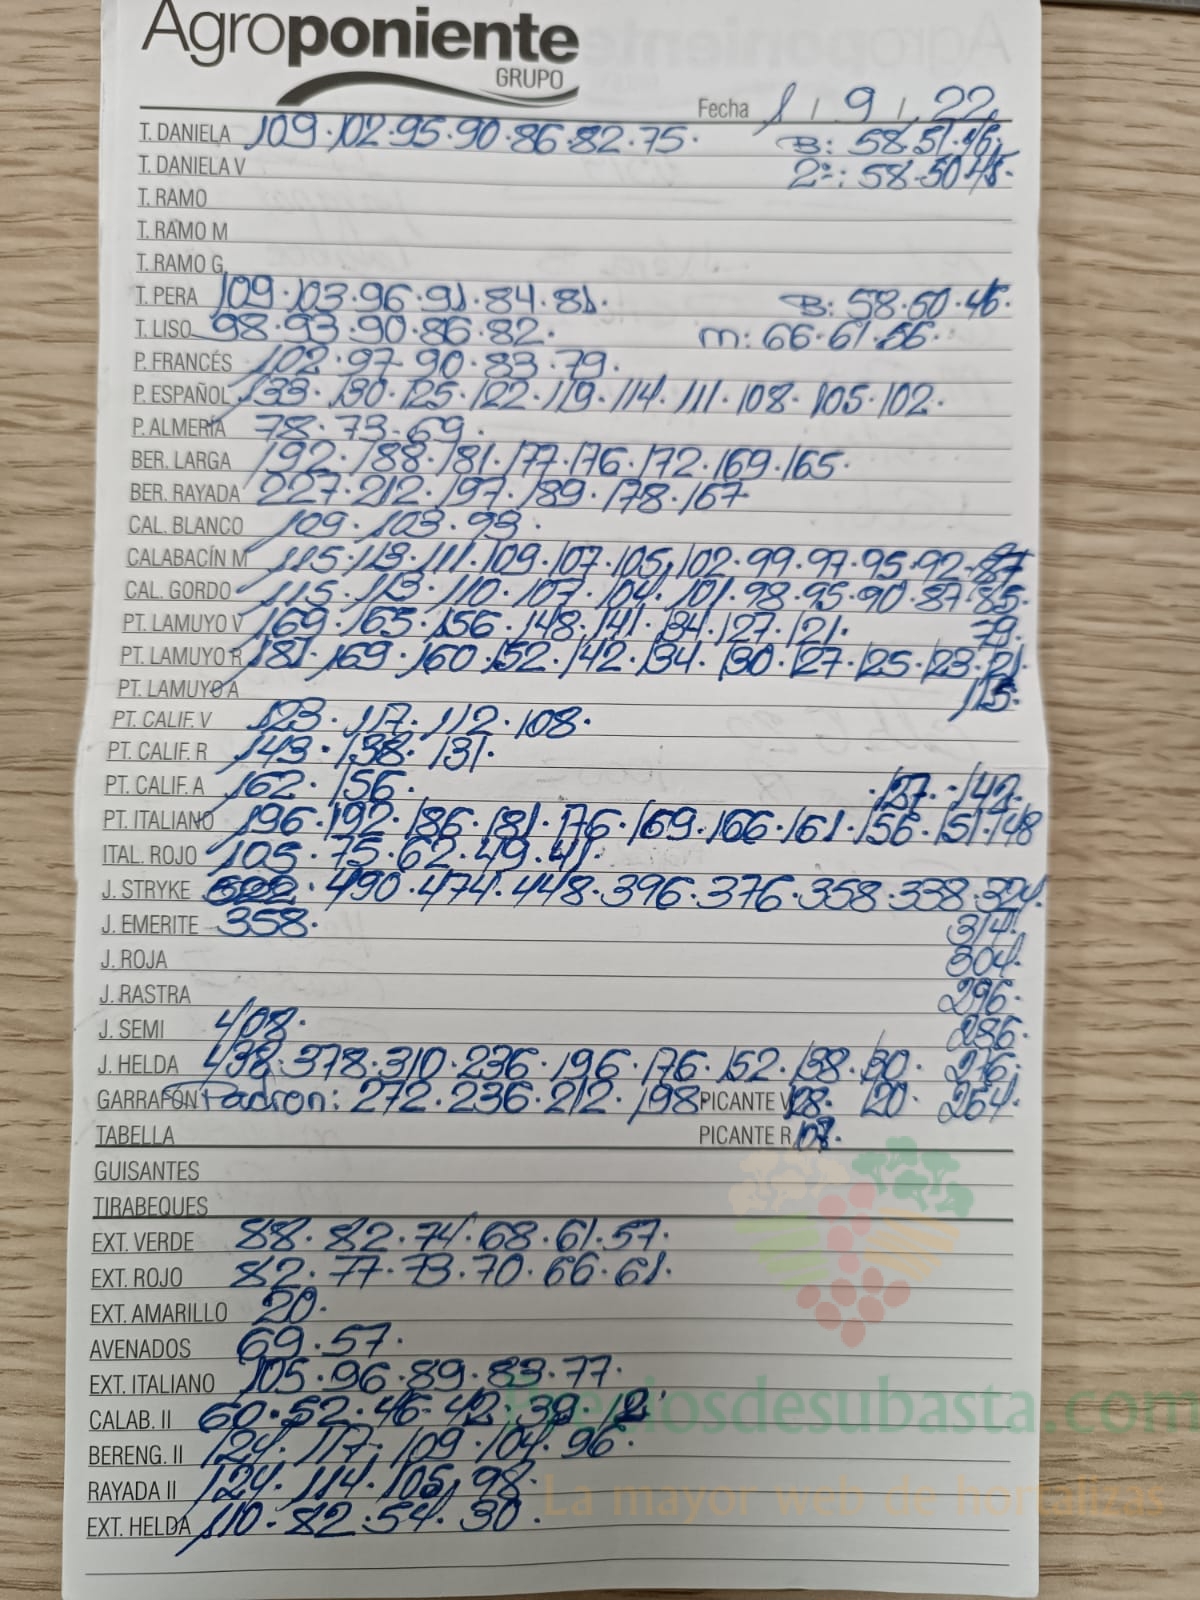 Agroponiente
GRUPO
Fecha 1 / 9 / 22
T. DANIELA 109·102·95·90·86·82·75· B: 58·51·46·
T. DANIELA V 2ª: 58·50·45·
T. RAMO
T. RAMO M
T. RAMO G
T. PERA 109·103·96·91·84·81· B: 58·50·46·
T. LISO 98·93·90·86·82· m: 66·61·56·
P. FRANCÉS 102·97·90·83·79·
P. ESPAÑOL 133·130·125·122·119·114·111·108·105·102·
P. ALMERÍA 78·73·69·
BER. LARGA 192·188·181·177·176·172·169·165·
BER. RAYADA 227·212·197·189·178·167
CAL. BLANCO 109·103·93·
CALABACÍN M 115·113·111·109·107·105·102·99·97·95·92·87
CAL. GORDO 115·113·110·107·104·101·98·95·90·87·85·
PT. LAMUYO V 169·165·156·148·141·134·127·121· 79·
PT. LAMUYO R 181·169·160·152·142·134·130·127·125·123·121·
PT. LAMUYO A 115·
PT. CALIF. V 123·117·112·108·
PT. CALIF. R 143·138·131·
PT. CALIF. A 162·156· ·137·142·
PT. ITALIANO 196·192·186·181·176·169·166·161·156·151·148
ITAL. ROJO 105·75·62·49·41·
J. STRYKE 522·490·474·448·396·376·358·338·324·
J. EMERITE 358· 314·
J. ROJA 304·
J. RASTRA 296·
J. SEMI 408· 286·
J. HELDA 438·378·310·236·196·176·152·138·130· 276·
GARRAFÓN Padron: 272·236·212·198 PICANTE V 128· 120· 264·
TABELLA PICANTE R 107·
GUISANTES
TIRABEQUES
EXT. VERDE 88·82·74·68·61·57·
EXT. ROJO 82·77·73·70·66·61·
EXT. AMARILLO 20·
AVENADOS 69·57·
EXT. ITALIANO 105·96·89·83·77·
CALAB. II 60·52·46·42·39·12·
BERENG. II 124·117·109·104·96·
RAYADA II 124·114·105·98·
EXT. HELDA 110·82·54·30·
Preciosdesubasta.com
La mayor web de hortalizas